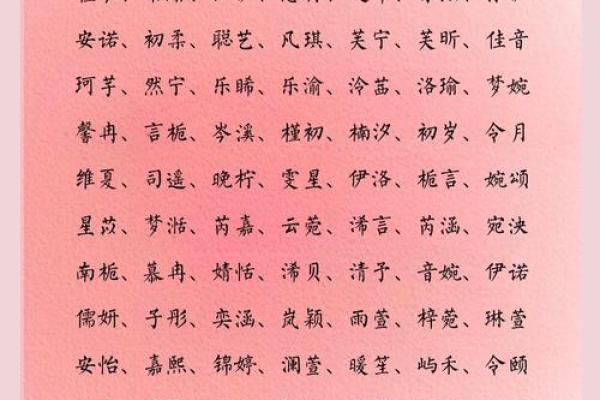 安诺、初柔、聪艺、凡琪、芙宁、芙昕、佳音
珂芋、然宁、乐晞、乐渝、泠茜、洛瑜、梦婉
馨冉、言栀、岑溪、槿初、楠汐、初岁、令月
维夏、司遥、晚柠、雯星、伊洛、栀言、婉颂
星苡、梦湉、芮嘉、云菀、浠言、芮涵、宛泱
南栀、慕冉、婧恬、浠贝、清予、音婉、伊诺
儒妍、子彤、奕涵、岚颖、雨萱、梓菀、琳萱
安怡、嘉熙、锦婷、澜萱、暖笙、屿禾、令颐